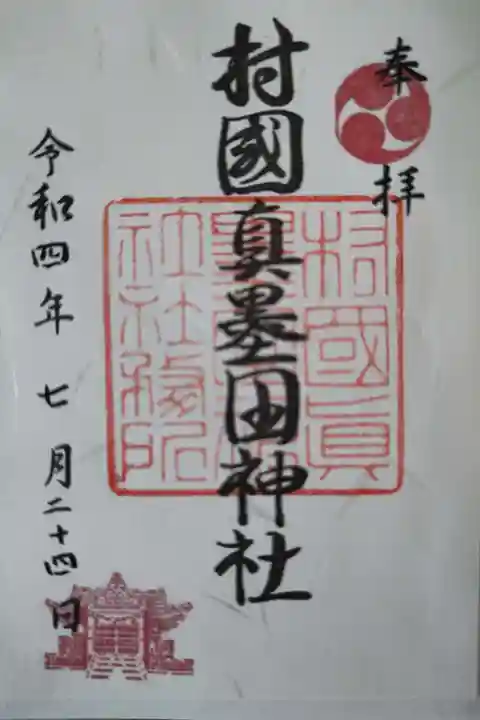 奉拝
村國真墨田神社
村國真
墨田神
社社務所
令和四年 七月二十四日